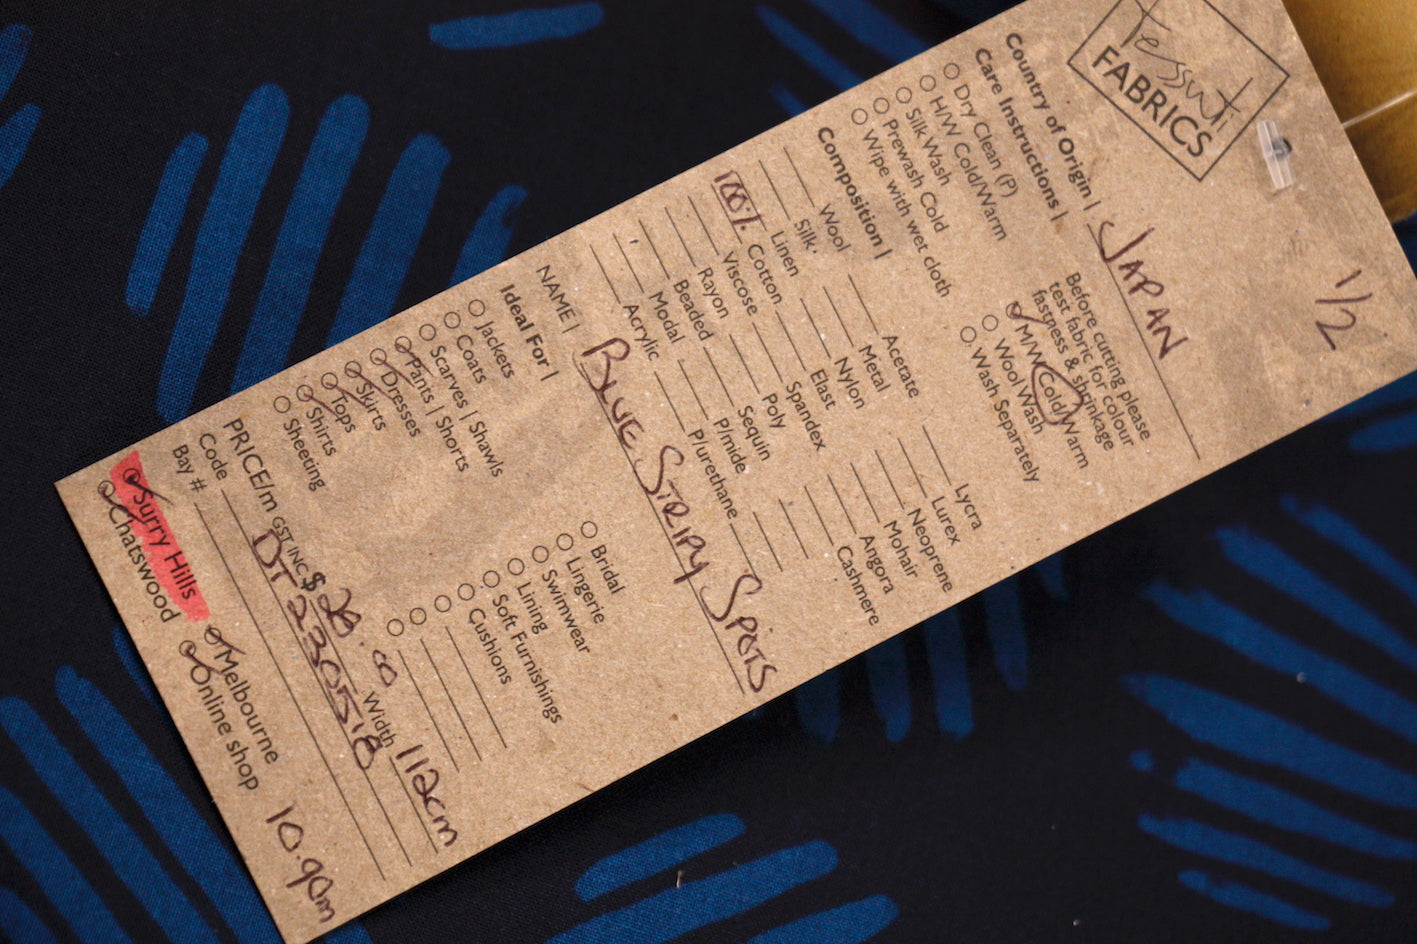 1/2
Tessuti
FABRICS
Country of Origin | JAPAN
Care Instructions |
Dry Clean (P)
H/W Cold/Warm
Silk Wash
Prewash Cold
Wipe with wet cloth
Before cutting please
test fabric for colour
fastness & shrinkage
M/W Cold/Warm
Wool Wash
Wash Separately
Composition |
Wool
Silk
Linen
100% Cotton
Viscose
Rayon
Beaded
Modal
Acrylic
Acetate
Metal
Nylon
Elast
Spandex
Poly
Sequin
P/mide
P/urethane
Lycra
Lurex
Neoprene
Mohair
Angora
Cashmere
NAME | BLUE STRIPY SPOTS
Ideal For |
Jackets
Coats
Scarves | Shawls
Pants | Shorts
Dresses
Skirts
Tops
Shirts
Sheeting
Bridal
Lingerie
Swimwear
Lining
Soft Furnishings
Cushions
PRICE/m GST INC $ 28.00 Width 112cm
Code DT230518
Bay #
Surry Hills
Chatswood
Melbourne
Online shop
10.90m